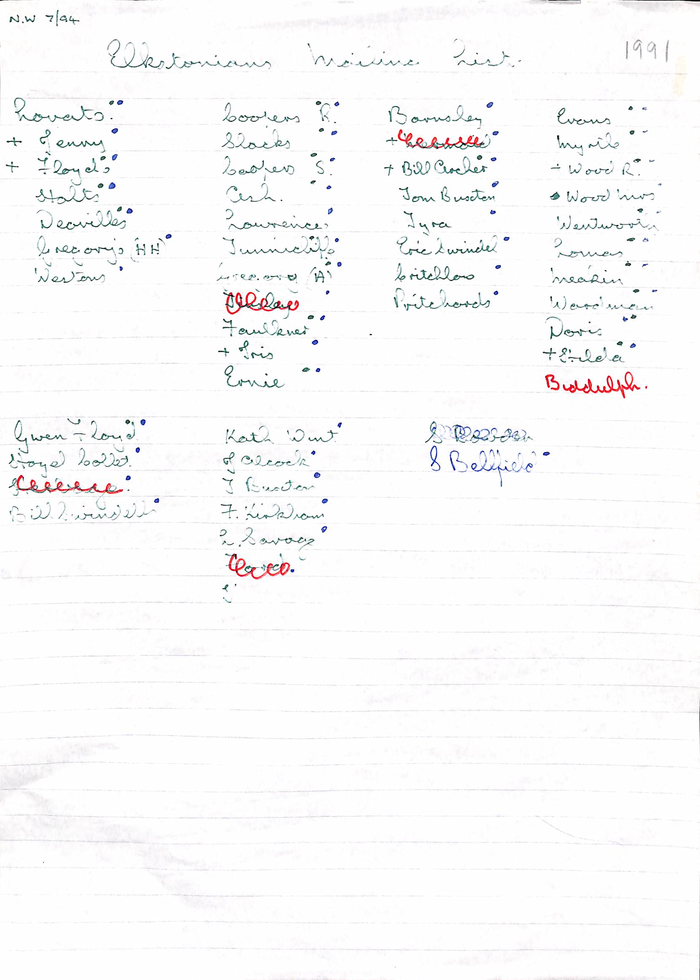 N.W 7/94
Elkstonians Mailing List.
1991
Lovats.
+ Jenny
+ Floyds
Holts
Deavilles
Gregory's (HH)
Westons
Coopers R.
Slacks
Coopers S.
Ash.
Lawrence
Tunnicliffe
Gregory (A)
Faulkner
+ Iris
Ernie
Barnsley
+ Bill Crocker
Tom Buxton
Tyra
Eric Swindel
Critchlow
Pritchards
Evans
Myrtle
+ Wood R.
Wood Mrs
Wentworth
Lomas
Meakin
Woodman
Doris
+ Hilda
Biddulph.
Gwen Floyd
Bill Swindells
Kath Wint
J Alcock
J Buxton
F. Kirkham
L. Savage
S Bellfield